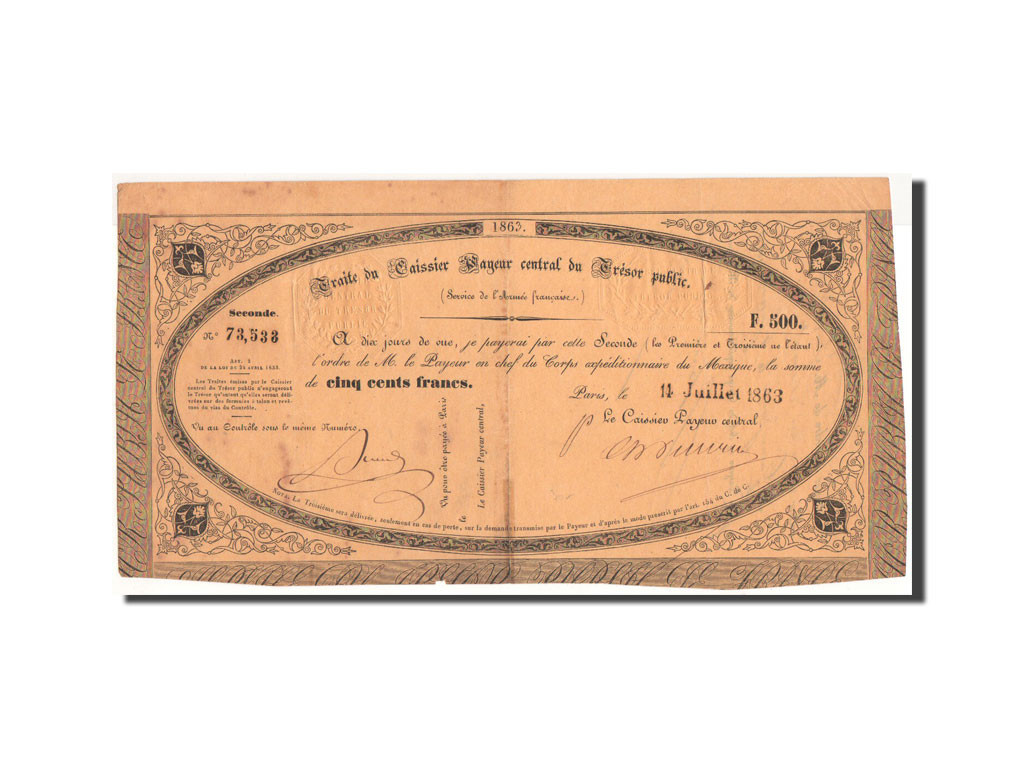 1863.
Traite du Caissier Payeur central du Trésor public.
(Service de l'Armée française.)
Seconde.
N° 73,533
F. 500.
A dix jours de vue, je payerai par cette Seconde (la Première et Troisième ne l'étant) à
l'ordre de M. le Payeur en chef du Corps expéditionnaire du Mexique, la somme
de cinq cents francs.
Paris, le 14 Juillet 1863
p Le Caissier Payeur central,
ART. 2
DE LA LOI DU 24 AVRIL 1833.
Les Traites émises par le Caissier
central du Trésor public n'engageront
le Trésor qu'autant qu'elles seront déli-
vrées sur des formules à talon et revê-
tues du visa du Contrôle.
Vu au Contrôle sous le même Numéro,
Vu pour être payée à Paris
le
Le Caissier Payeur central,
NOTA. La Troisième sera délivrée, seulement en cas de perte, sur la demande transmise par le Payeur et d'après le mode prescrit par l'art. 154 du C. de C.